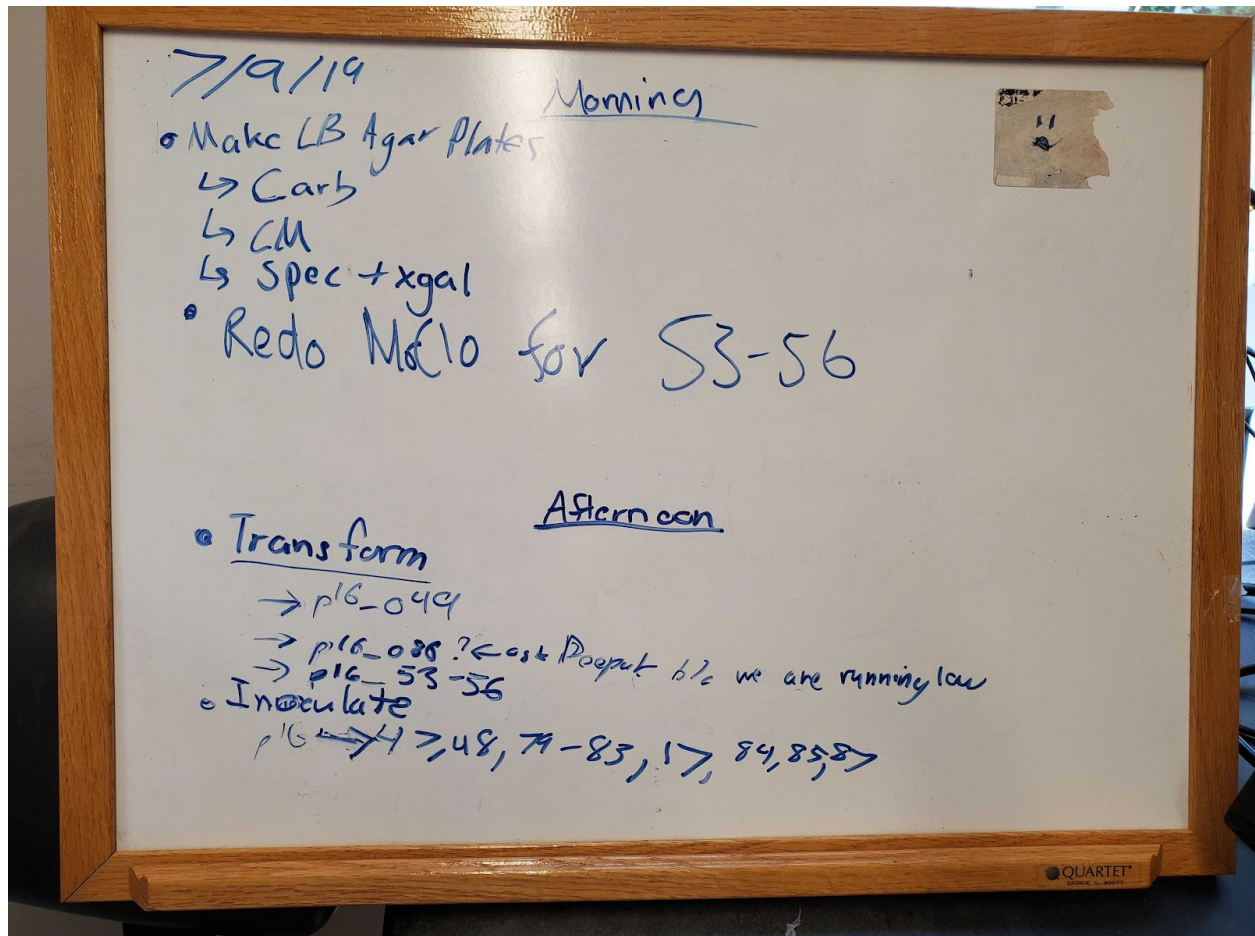 7/9/19
Morning
• Make LB Agar Plates
↳ Carb
↳ CM
↳ Spec + xgal
• Redo MoClo for 53-56
Afternoon
• Transform
→ p16_049
→ p16_086 ? ← ask Deepak b/c we are running low
→ p16_53-56
• Inoculate
p16 → 47, 48, 79-83, 17, 84, 85, 87
QUARTET